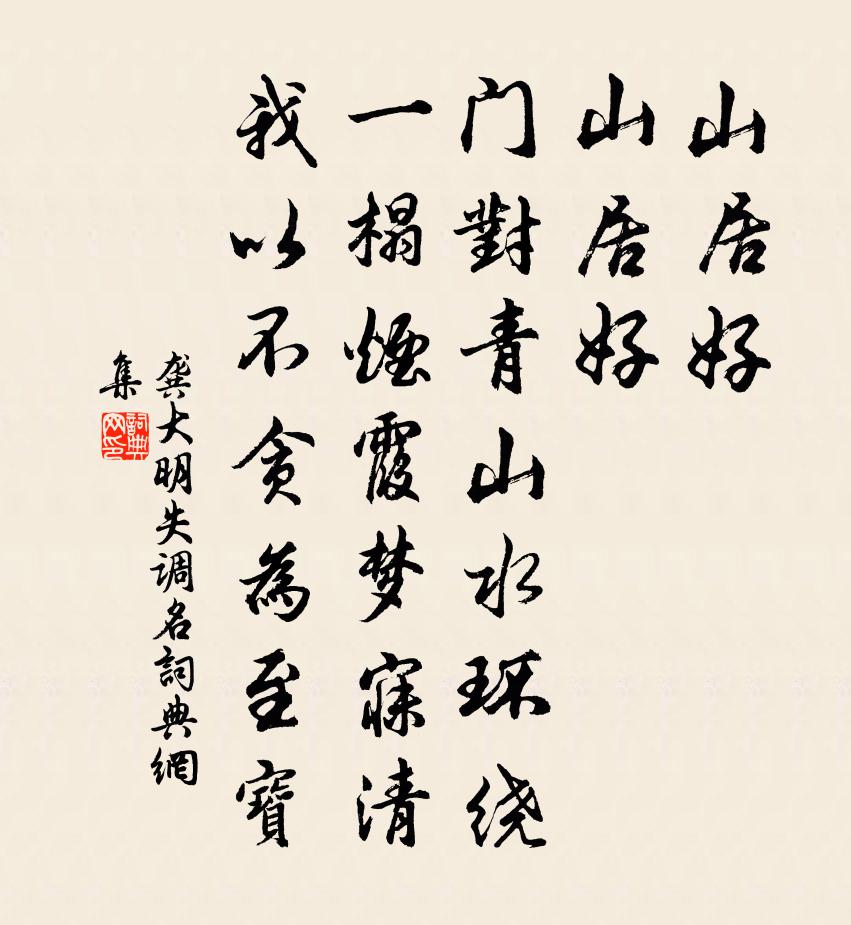 山居好
山居好
门對青山水环绕
一榻煙霞梦寐清
我以不贪為至寶
龚大明失调名詞典網
集
詞典
网印